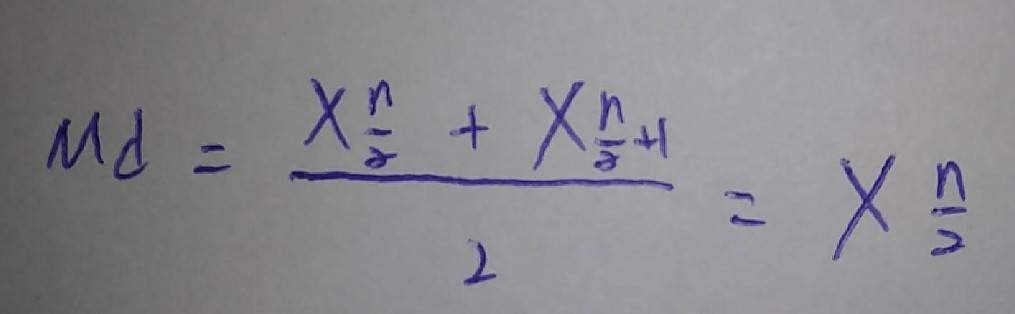 Md = \frac{X_{\frac{n}{2}} + X_{\frac{n}{2}+1}}{2} = X_{\frac{n}{2}}